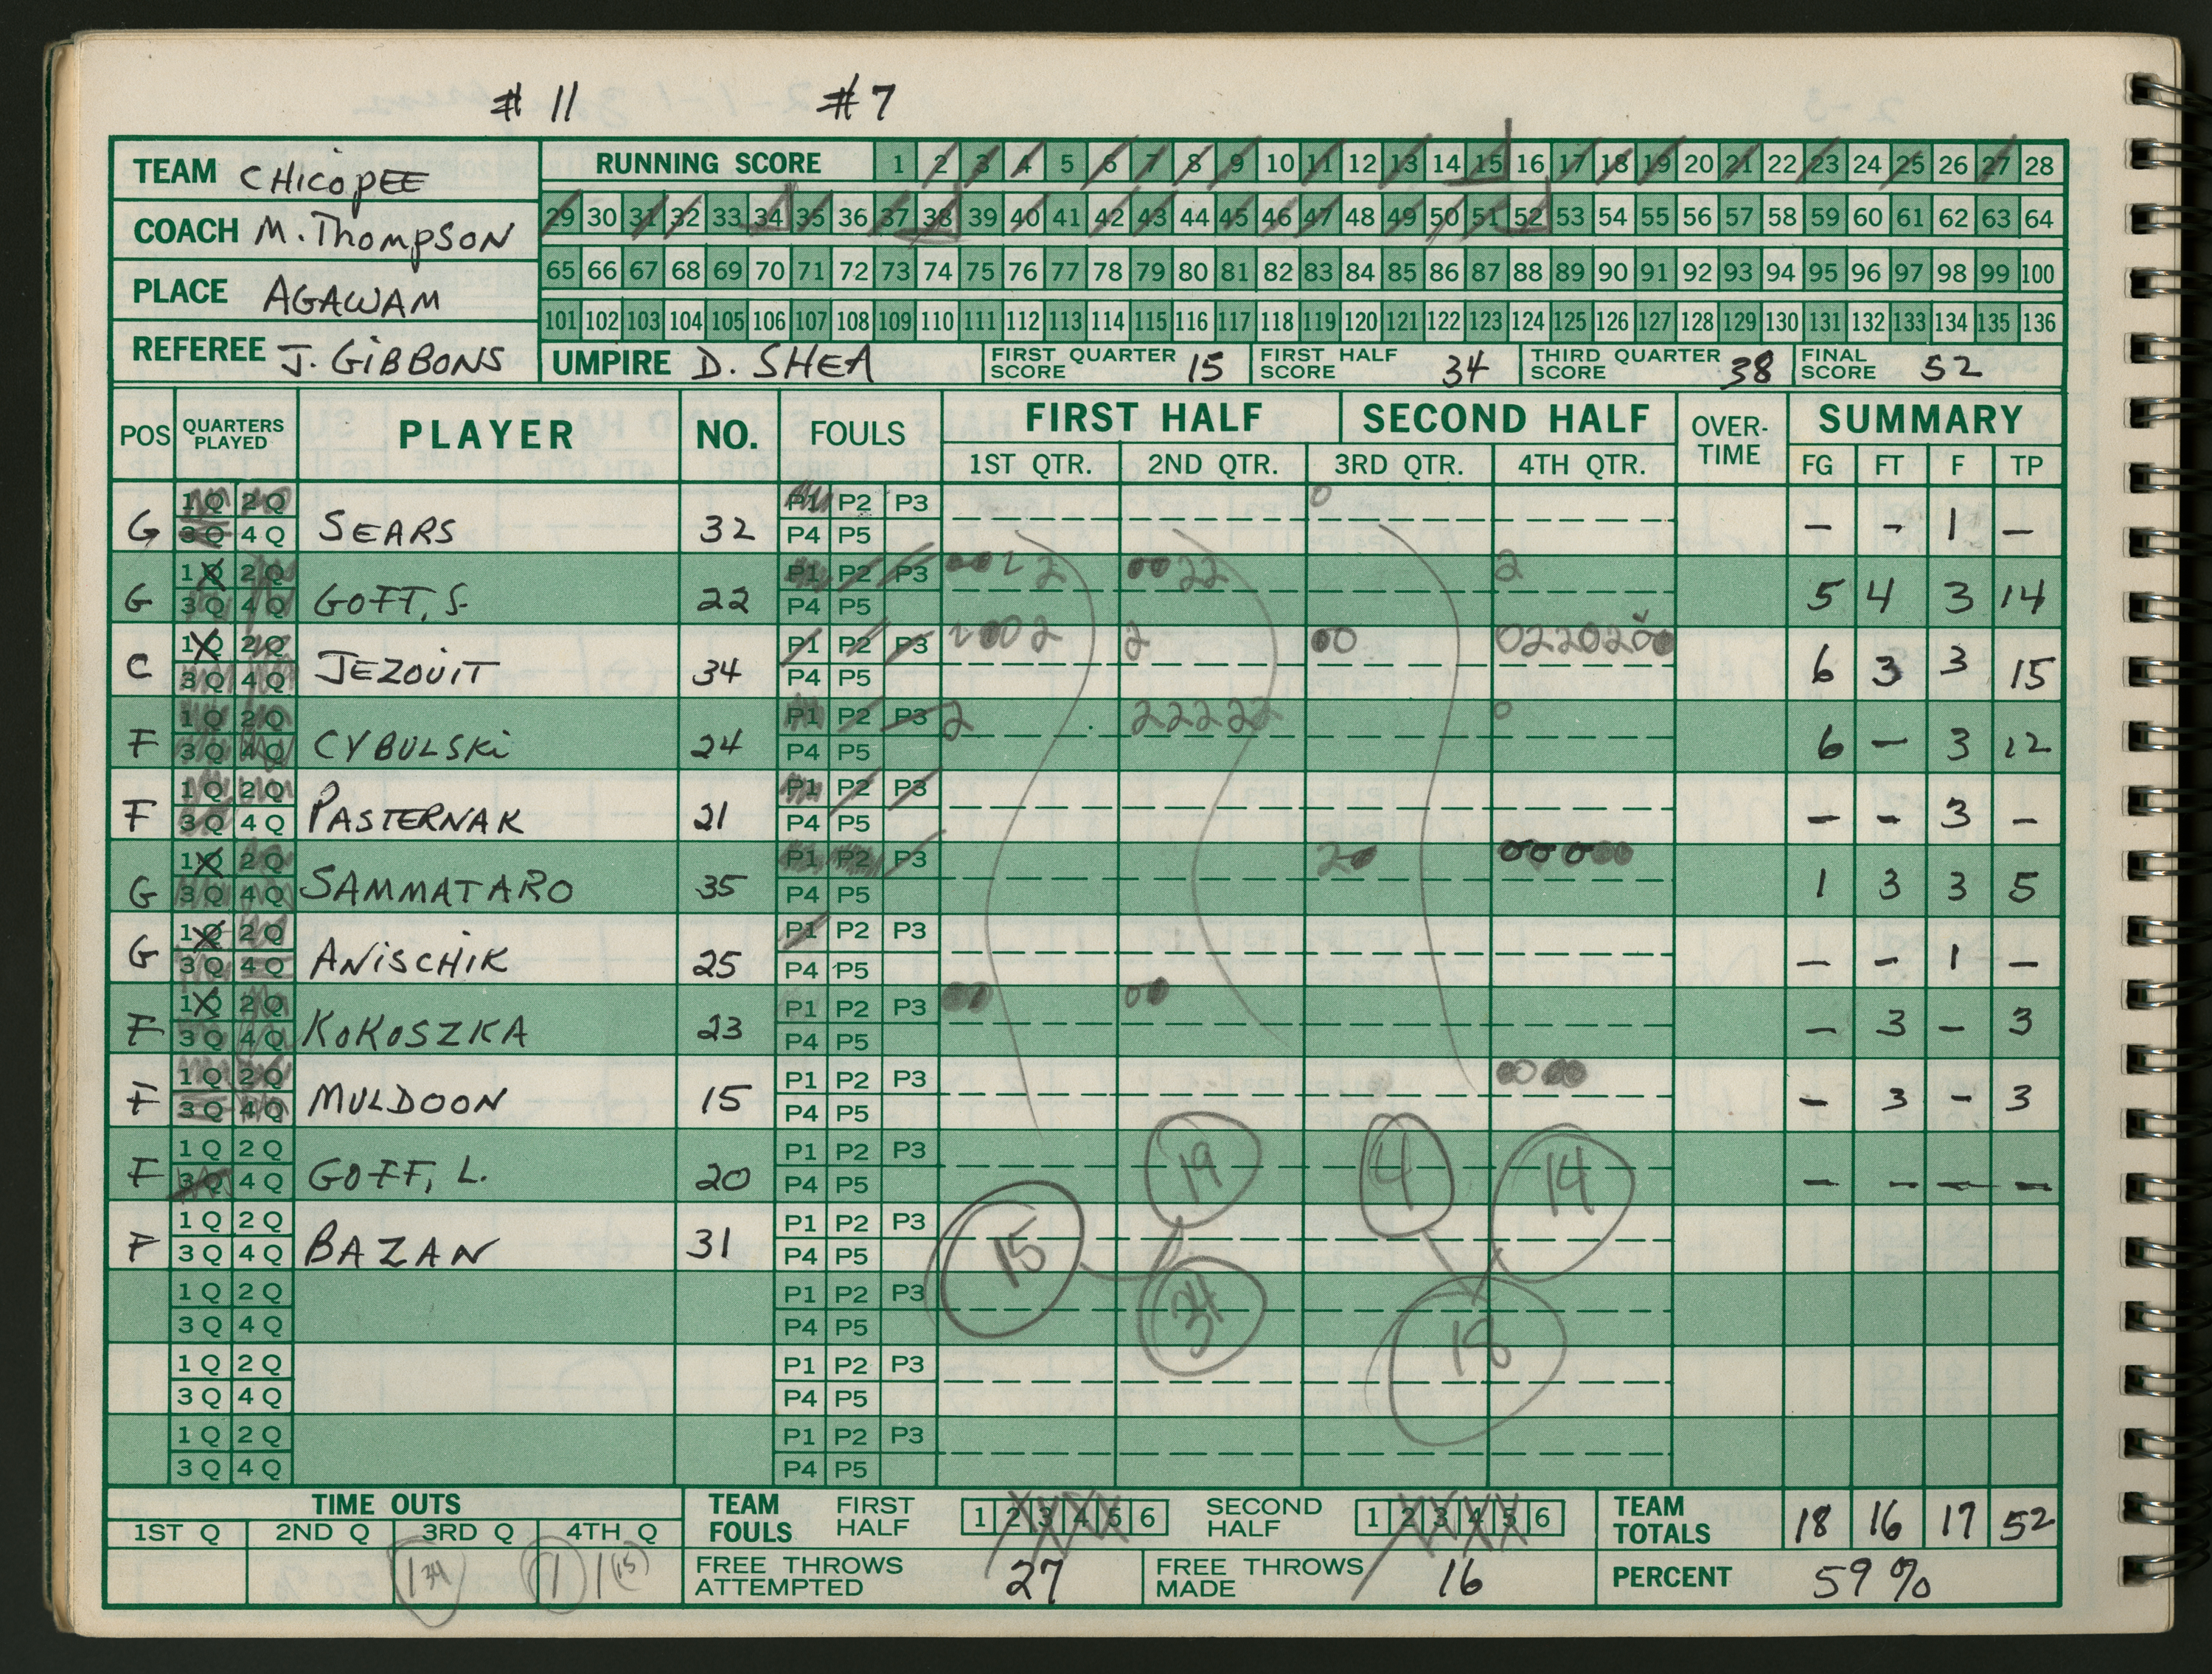 # 11 # 7
TEAM CHICOPEE
COACH M. THOMPSON
PLACE AGAWAM
REFEREE J. GIBBONS
RUNNING SCORE 1 2 3 4 5 6 7 8 9 10 11 12 13 14 15 16 17 18 19 20 21 22 23 24 25 26 27 28
29 30 31 32 33 34 35 36 37 38 39 40 41 42 43 44 45 46 47 48 49 50 51 52 53 54 55 56 57 58 59 60 61 62 63 64
65 66 67 68 69 70 71 72 73 74 75 76 77 78 79 80 81 82 83 84 85 86 87 88 89 90 91 92 93 94 95 96 97 98 99 100
101 102 103 104 105 106 107 108 109 110 111 112 113 114 115 116 117 118 119 120 121 122 123 124 125 126 127 128 129 130 131 132 133 134 135 136
UMPIRE D. SHEA FIRST QUARTER SCORE 15 FIRST HALF SCORE 34 THIRD QUARTER SCORE 38 FINAL SCORE 52
POS QUARTERS PLAYED PLAYER NO. FOULS FIRST HALF SECOND HALF OVER-TIME SUMMARY
1ST QTR. 2ND QTR. 3RD QTR. 4TH QTR. FG FT F TP
1Q 2Q P1 P2 P3 0
G 3Q 4Q SEARS 32 P4 P5 – – 1 –
1Q 2Q P1 P2 P3 2 22 2
G 3Q 4Q GOFF, S. 22 P4 P5 5 4 3 14
1Q 2Q P1 P2 P3 2 0 2 2 0 0220200
C 3Q 4Q JEZOUIT 34 P4 P5 6 3 3 15
1Q 2Q P1 P2 P3 2 22222 0
F 3Q 4Q CYBULSKI 24 P4 P5 6 – 3 12
1Q 2Q P1 P2 P3
F 3Q 4Q PASTERNAK 21 P4 P5 – – 3 –
1Q 2Q P1 P2 P3 2 00000
G 3Q 4Q SAMMATARO 35 P4 P5 1 3 3 5
1Q 2Q P1 P2 P3
G 3Q 4Q ANISCHIK 25 P4 P5 – – 1 –
1Q 2Q P1 P2 P3 0
F 3Q 4Q KOKOSZKA 23 P4 P5 – 3 – 3
1Q 2Q P1 P2 P3 0
F 3Q 4Q MULDOON 15 P4 P5 – 3 – 3
1Q 2Q P1 P2 P3 19 4 14
F 3Q 4Q GOFF, L. 20 P4 P5 – – – –
1Q 2Q P1 P2 P3 15
F 3Q 4Q BAZAN 31 P4 P5
1Q 2Q P1 P2 P3 34
3Q 4Q P4 P5 18
1Q 2Q P1 P2 P3
3Q 4Q P4 P5
1Q 2Q P1 P2 P3
3Q 4Q P4 P5
TIME OUTS TEAM FOULS FIRST HALF 1 2 3 4 5 6 SECOND HALF 1 2 3 4 5 6 TEAM TOTALS 18 16 17 52
1ST Q 2ND Q 3RD Q 4TH Q
1 34 1 1 15 FREE THROWS ATTEMPTED 27 FREE THROWS MADE 16 PERCENT 59%